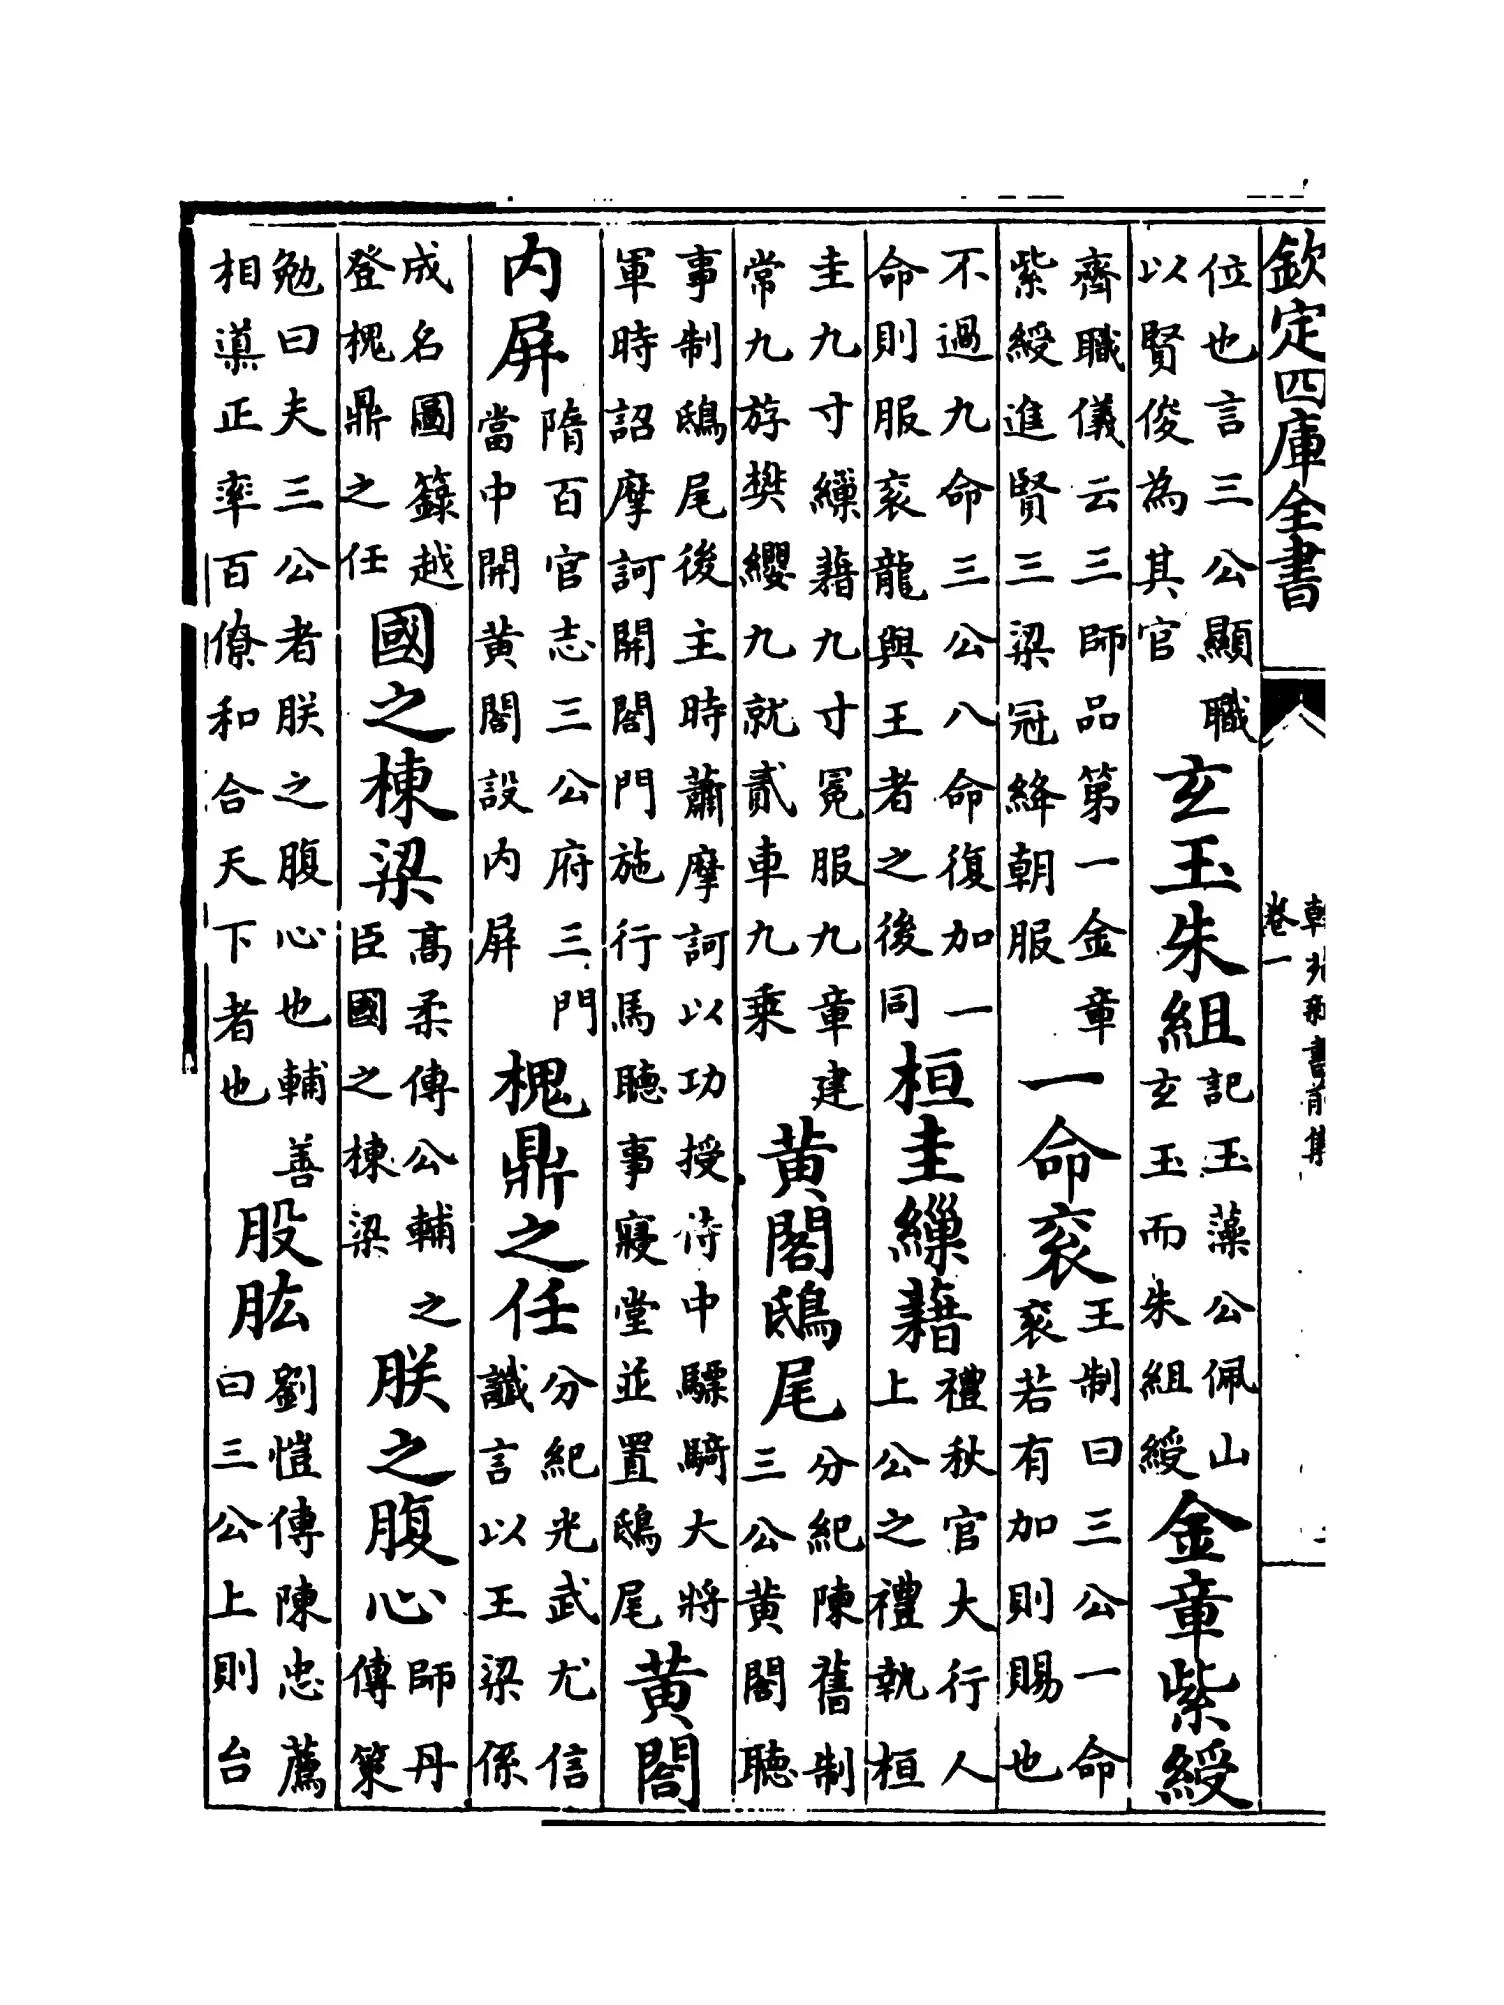 欽定四庫全書
卷一
位也言三公顯職以賢俊為其官玄玉朱組記玉藻公佩山玄玉而朱組綬金章紫綬
齊職儀云三師品第一金章紫綬進賢三梁冠絳朝服一命衮王制曰三公一命衮若有加則賜也
不過九命三公八命復加一命則服衮龍與王者之後同桓圭繅藉禮秋官大行人上公之禮執桓
圭九寸繅藉九寸冕服九章建常九斿樊纓九就貳車九乗黄閣鴟尾分紀陳舊制三公黄閣聽
事制鴟尾後主時蕭摩訶以功授侍中驃騎大將軍時詔摩訶開閤門施行馬聽事寢堂並置鴟尾黄閤
内屏隋百官志三公府三門當中開黄閤設内屏槐鼎之任分紀光武尤信讖言以王梁係
成名圖籙越登槐鼎之任國之棟梁高柔傳公輔之臣國之棟梁朕之腹心師丹傳策
勉曰夫三公者朕之腹心也輔善相導正率百僚和合天下者也股肱劉愷傳陳忠薦曰三公上則台